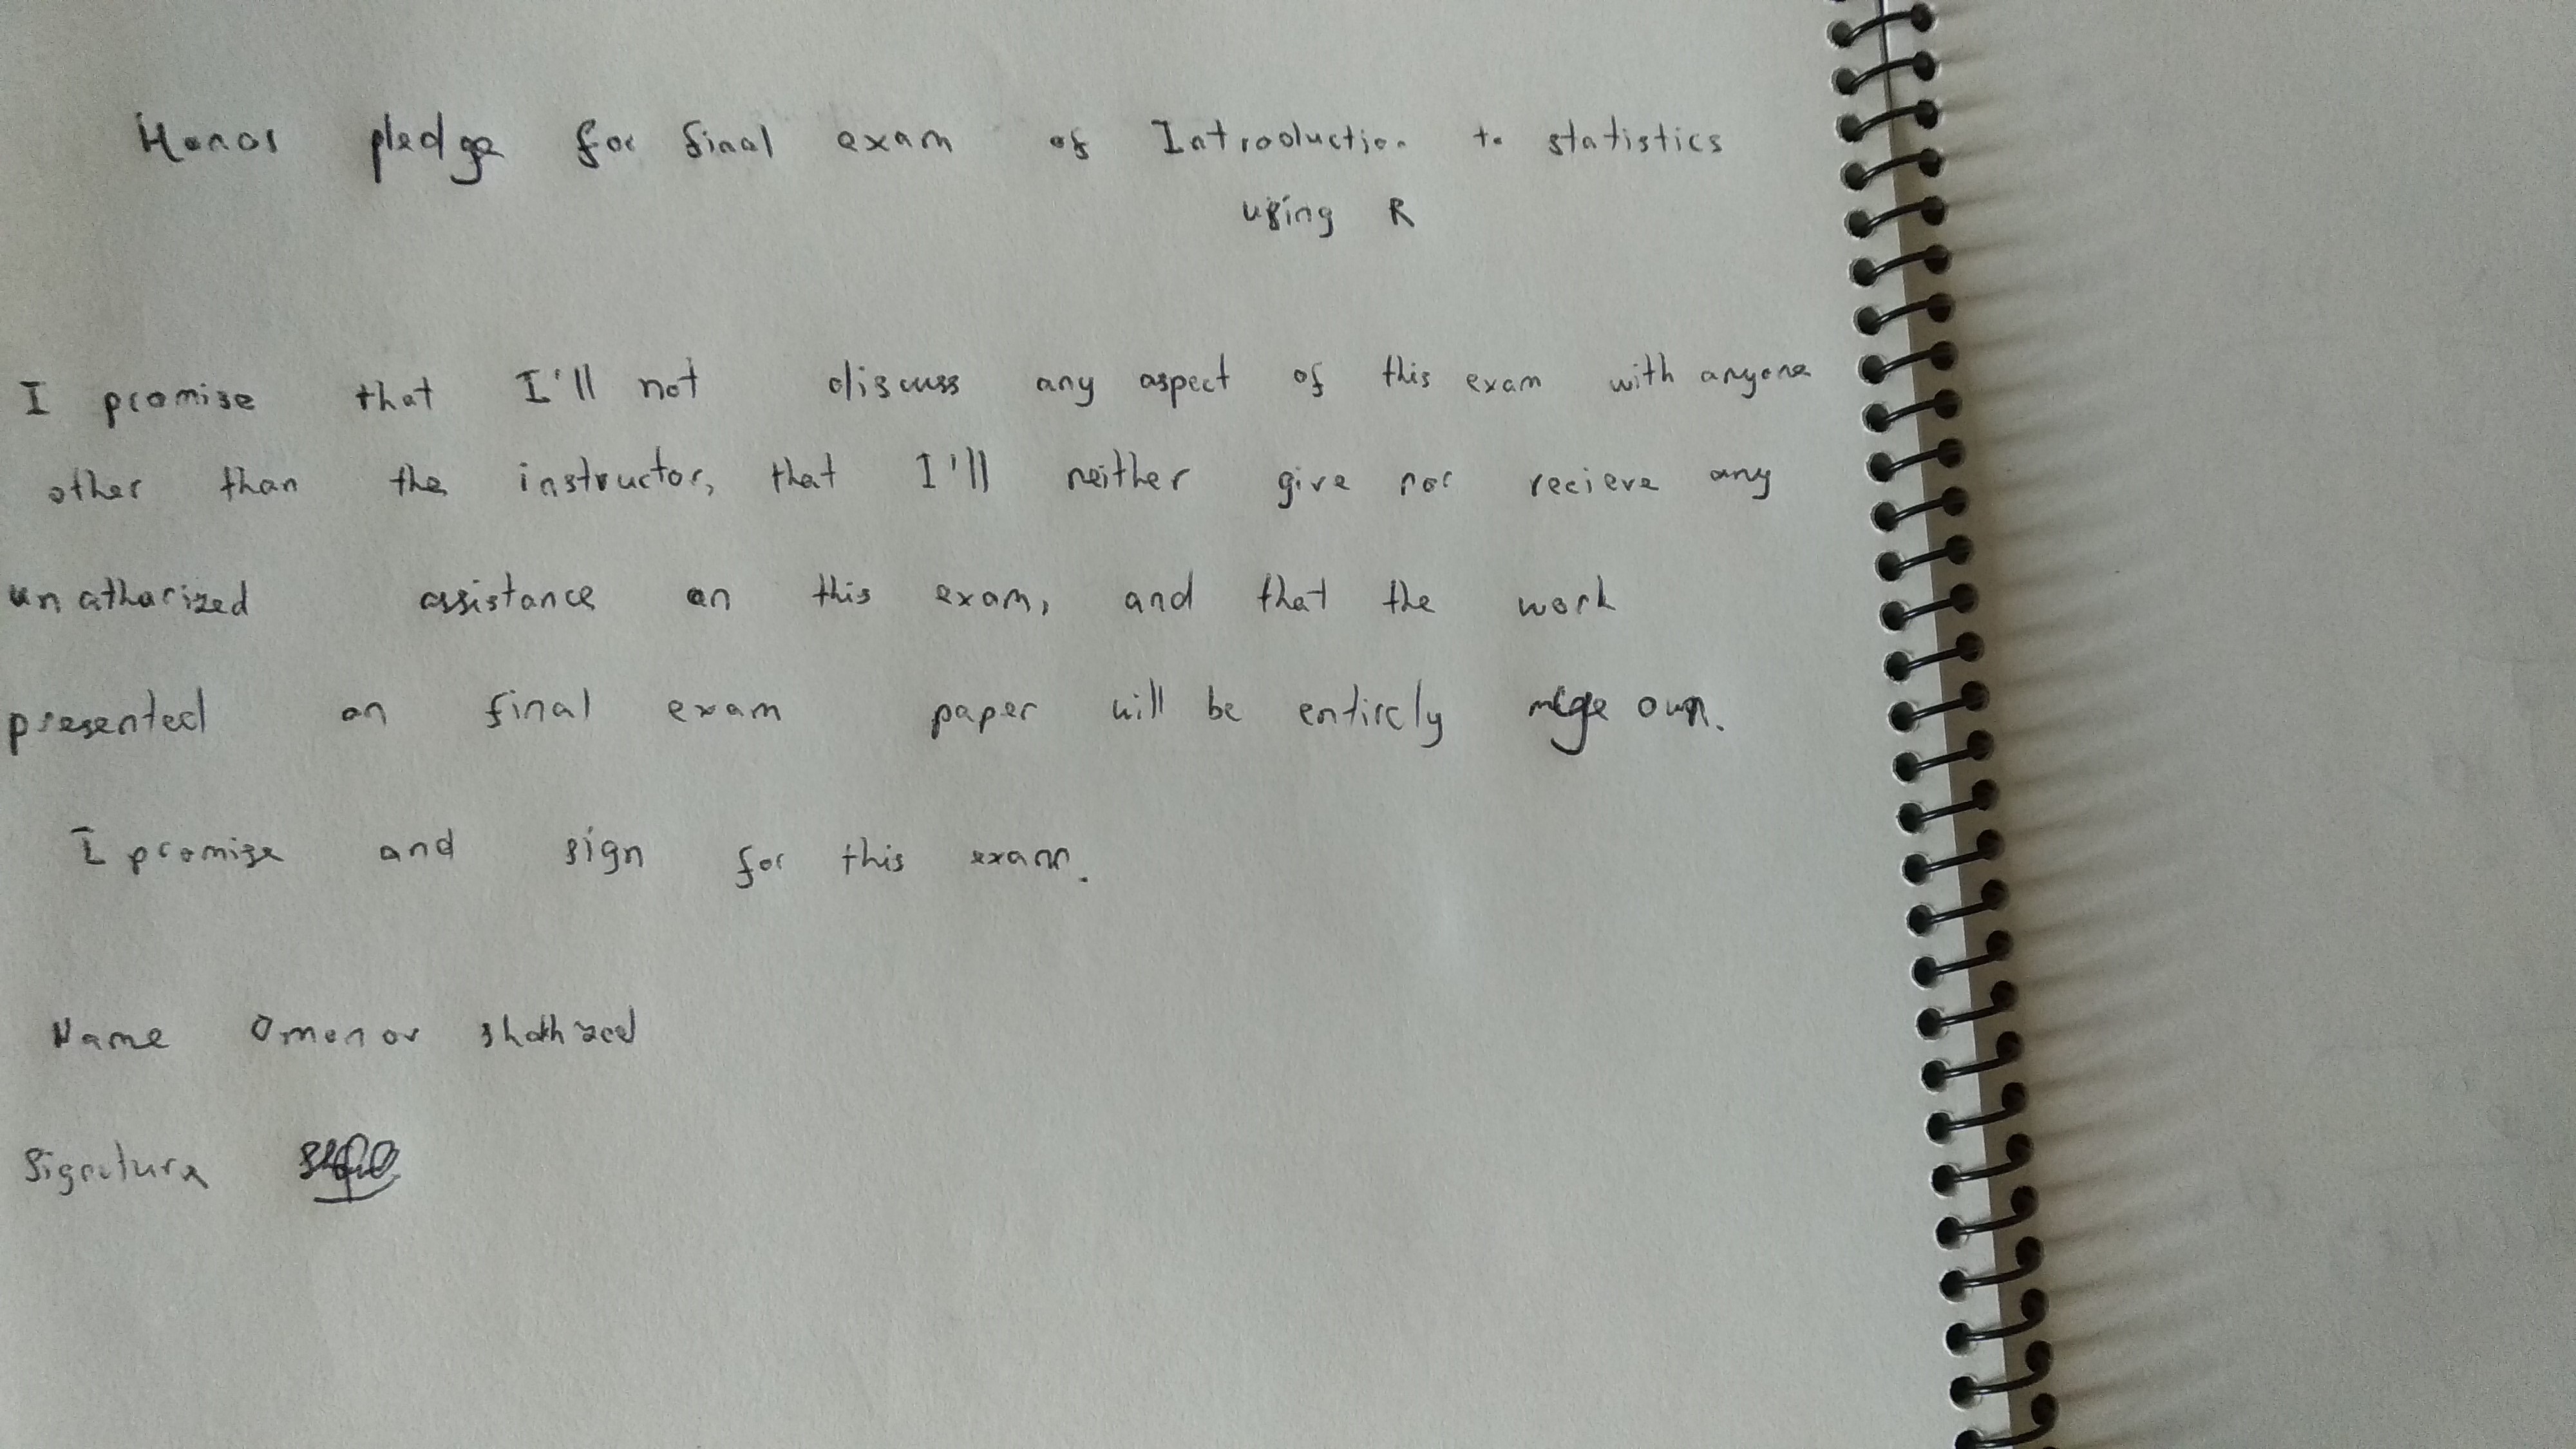 Honor pledge for final exam of Introduction to statistics
using R
I promise that I'll not discuss any aspect of this exam with anyone
other than the instructor, that I'll neither give nor recieve any
unatharized assistance on this exam, and that the work
presented on final exam paper will be entirely own.
I promise and sign for this exam.
Name Omonov
Signature